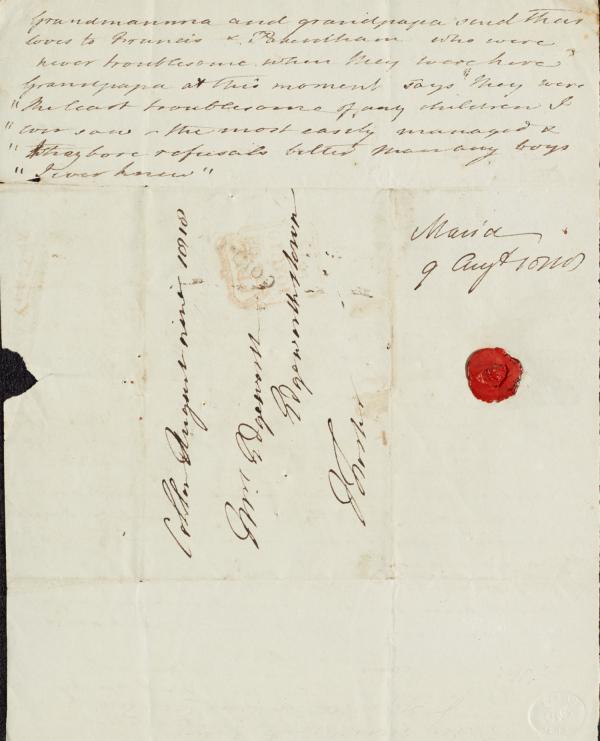 Grandmamma and grandpapa send their
loves to Francis & Pakenham who were
never troublesome when they were here
Grandpapa at this moment says "They were
"the least troublesome of any children I
"ever saw & the most easily managed &
"they bore refusals better than any boys
"I ever knew"
Maria
9 Augt. 1818
Collon August nine 1818
Mrs. Edgeworth
Edgeworthstown